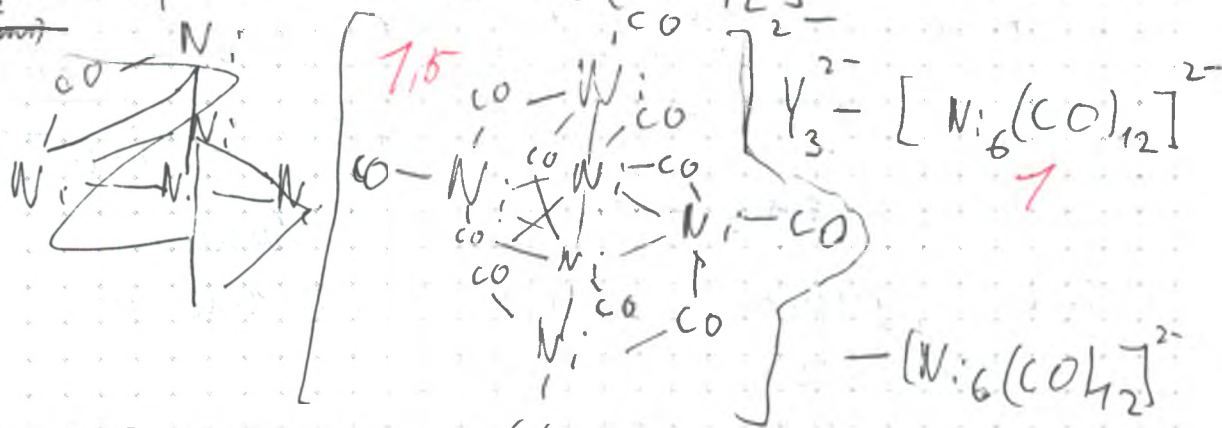 Ni
CO
Ni
Ni Ni N
1,5
[ CO
CO Ni
CO
CO Ni CO Ni CO
CO Ni CO
CO Ni
CO CO
Ni ]²⁻
Y₃²⁻ - [Ni₆(CO)₁₂]²⁻
1
- [Ni₆(CO)₁₂]²⁻